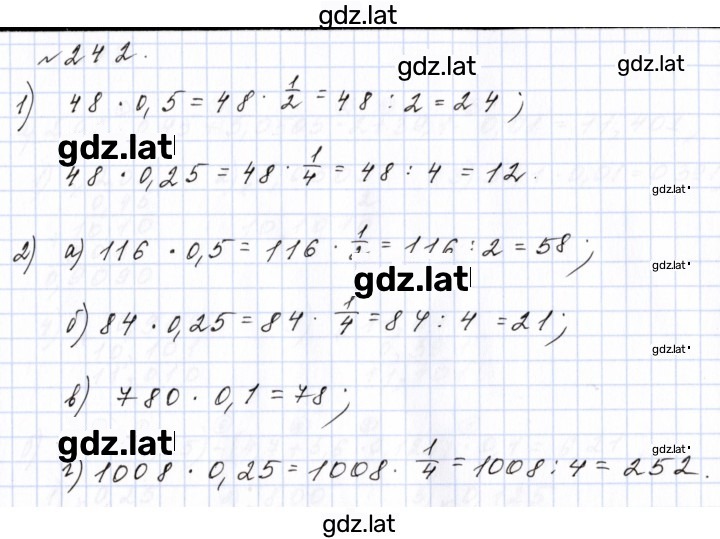 gdz.lat
№242.
gdz.lat
gdz.lat
1) 48 · 0,5 = 48 · 1/2 = 48 : 2 = 24 ;
gdz.lat
48 · 0,25 = 48 · 1/4 = 48 : 4 = 12.
gdz.lat
2) а) 116 · 0,5 = 116 · 1/2 = 116 : 2 = 58 ;
gdz.lat
gdz.lat
б) 84 · 0,25 = 84 · 1/4 = 84 : 4 = 21 ;
gdz.lat
в) 780 · 0,1 = 78 ;
gdz.lat
gdz.lat
г) 1008 · 0,25 = 1008 · 1/4 = 1008 : 4 = 252.
gdz.lat